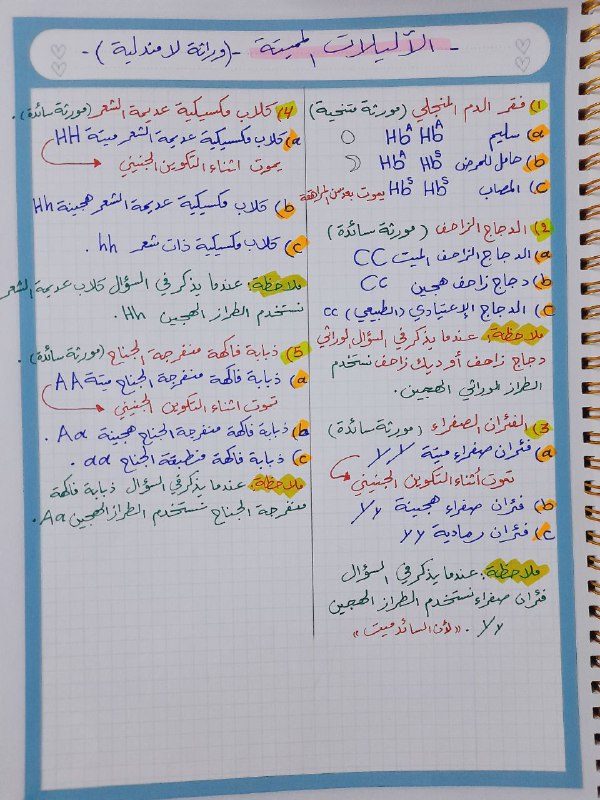 - الأليلات المميتة - (وراثة لا مندلية) -
1) فقر الدم المنجلي (مورثة متنحية)
a) سليم Hb^A Hb^A
b) حامل للمرض Hb^A Hb^S
c) المصاب Hb^S Hb^S يموت بعد سن المراهقة
2) الدجاج الزاحف (مورثة سائدة)
a) الدجاج الزاحف الميت CC
b) دجاج زاحف هجين Cc
c) الدجاج الإعتيادي (الطبيعي) cc
ملاحظة: عندما يذكر في السؤال الوراثي
دجاج زاحف أو ديك زاحف نستخدم
الطراز الوراثي الهجين.
3) الفئران الصفراء (مورثة سائدة)
a) فئران صفراء ميتة YY
تموت أثناء التكوين الجنيني
b) فئران صفراء هجينة Yy
c) فئران رمادية yy
ملاحظة: عندما يذكر في السؤال
فئران صفراء نستخدم الطراز الهجين
Yy. «لأن السائد ميت»
4) كلاب مكسيكية عديمة الشعر (مورثة سائدة).
a) كلاب مكسيكية عديمة الشعر ميتة HH
يموت اثناء التكوين الجنيني
b) كلاب مكسيكية عديمة الشعر هجينة Hh
c) كلاب مكسيكية ذات شعر hh.
ملاحظة: عندما يذكر في السؤال كلاب عديمة الشعر
نستخدم الطراز الهجين Hh.
5) ذبابة فاكهة منفرجة الجناح (مورثة سائدة).
a) ذبابة فاكهة منفرجة الجناح ميتة AA
تموت اثناء التكوين الجنيني
b) ذبابة فاكهة منفرجة الجناح هجينة Aa.
c) ذبابة فاكهة منطبقة الجناح aa.
ملاحظة: عندما يذكر في السؤال ذبابة فاكهة
منفرجة الجناح نستخدم الطراز الهجين Aa.